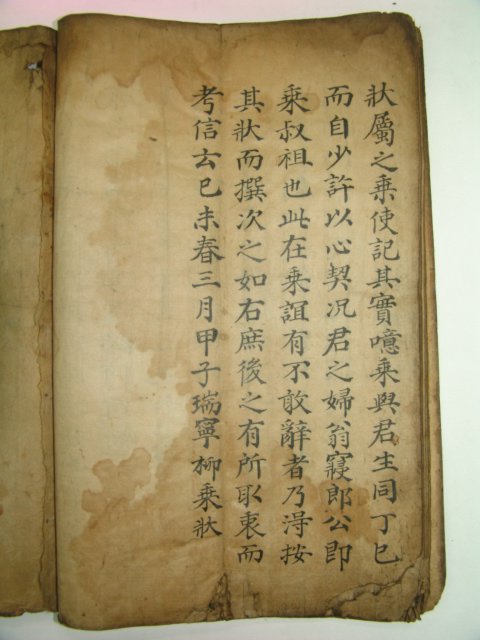 狀屬之乘使記其實噫乘與君生同丁巳
而自少許以心契况君之婦翁寢郎公即
乘叔祖也此在乘誼有不敢辭者乃得按
其狀而撰次之如右庶後之有所取衷而
考信玄巳未春三月甲子瑞寧柳乘狀